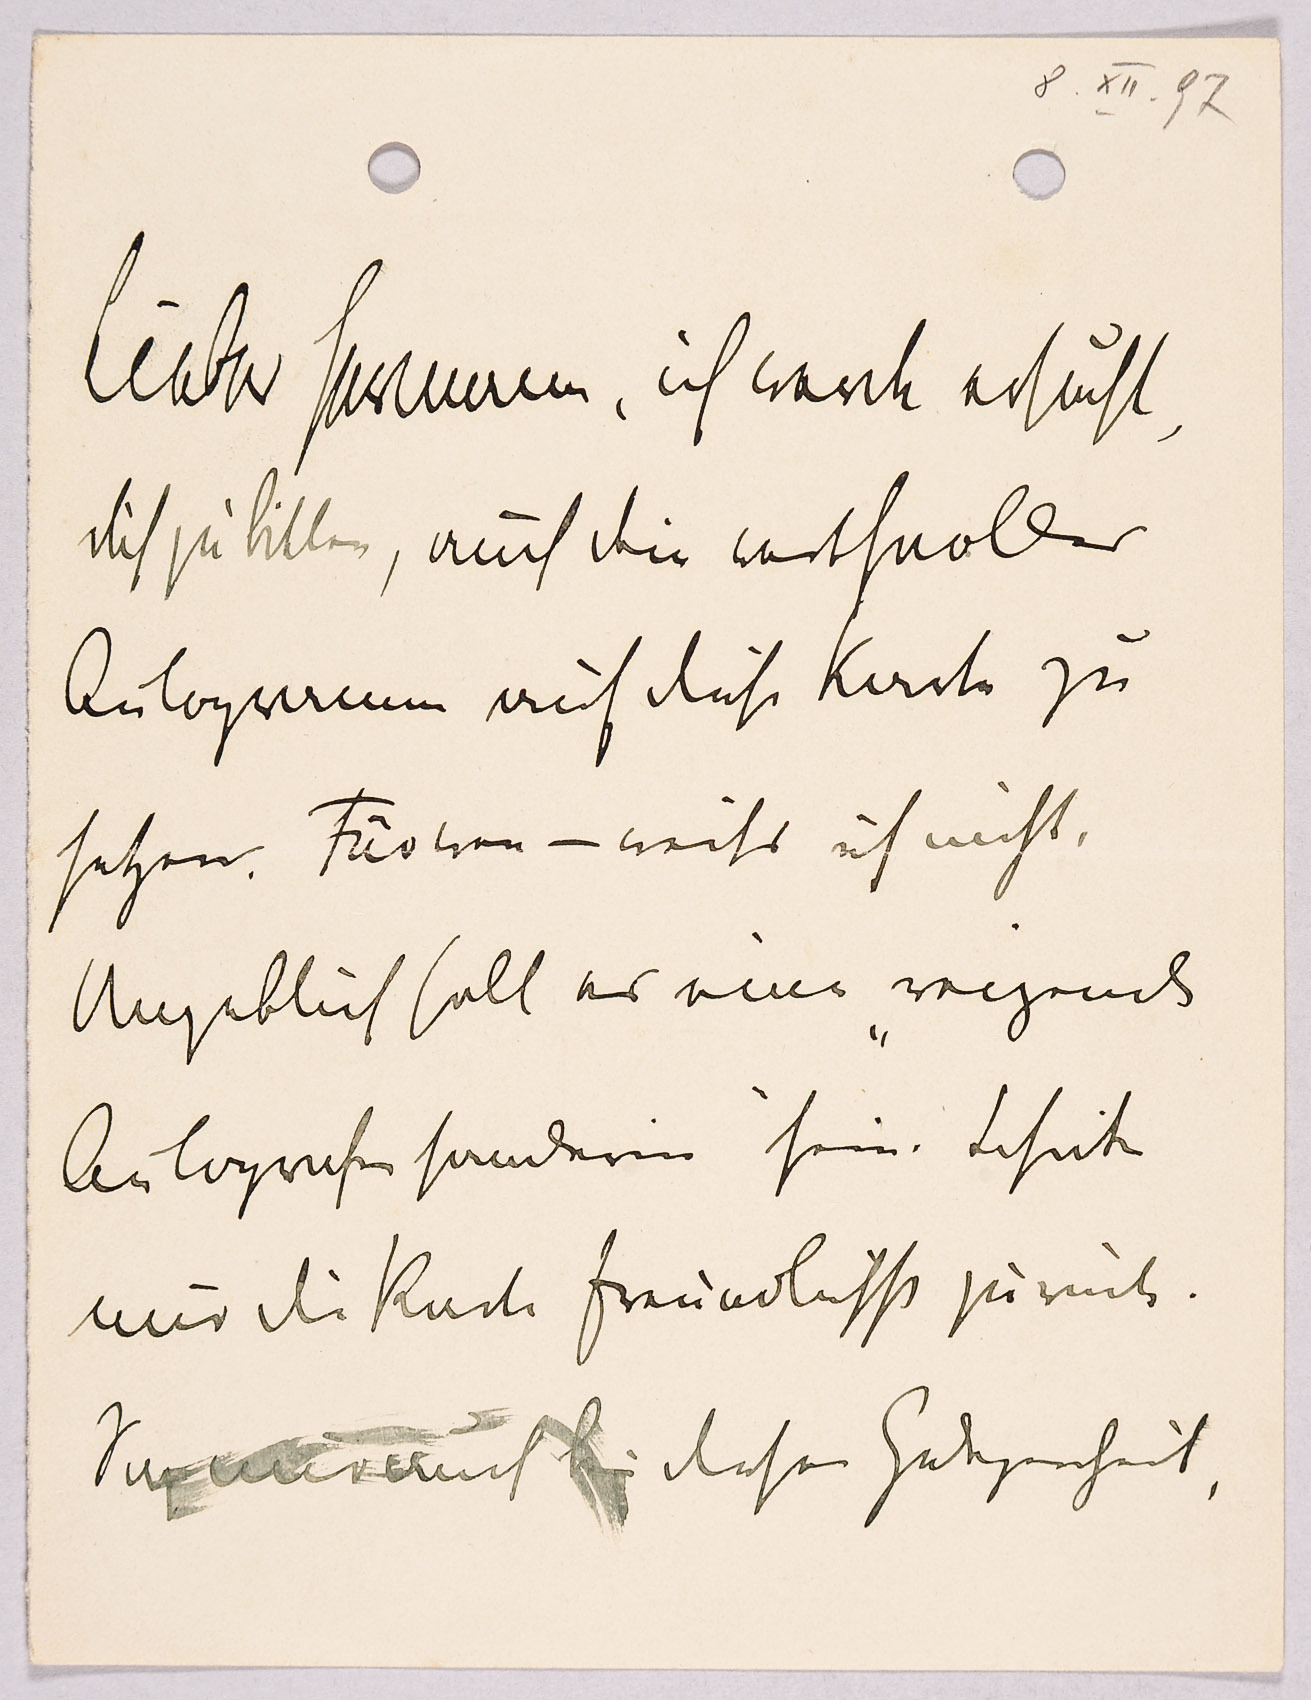 8. XII. 97
Lieber Hermann, ich werde ersucht,
dich zu bitten, auch dein werthvolles
Autogramm auf diese Karte zu
setzen. Für wen – weiß ich nicht.
Angeblich soll es eine „reizende
Autografensammlerin“ sein. Schicke
nur die Karte freundlichst zurück.
Sag mir auch bei dieser Gelegenheit,